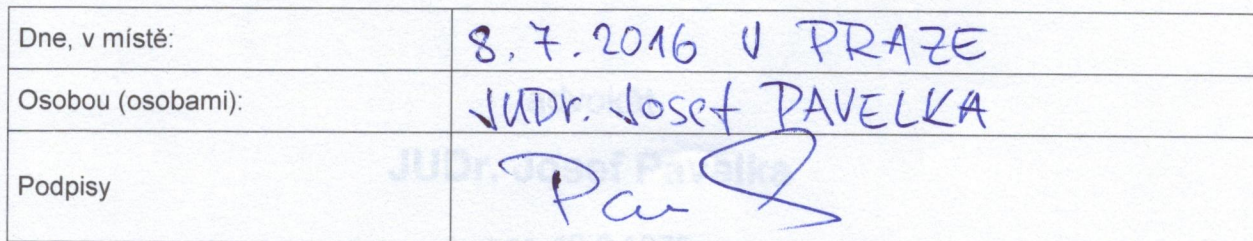 Dne, v místě: 8.7.2016 V PRAZE
Osobou (osobami): JUDr. Josef PAVELKA
advokát
JUDr. Josef Pavelka
Podpisy